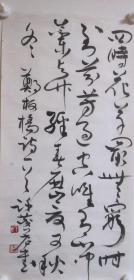 四時花草最無窮時
到芬芳過便空唯有山中
蘭與竹經春歷夏又秋
冬 鄭板橋詩一首